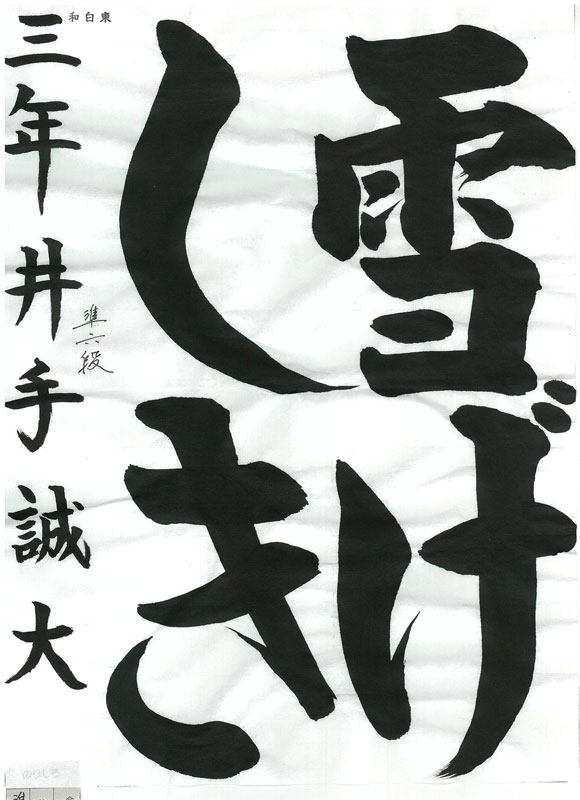 雪げ
しき
和白東
三年井手誠大
準六段
のりしろ